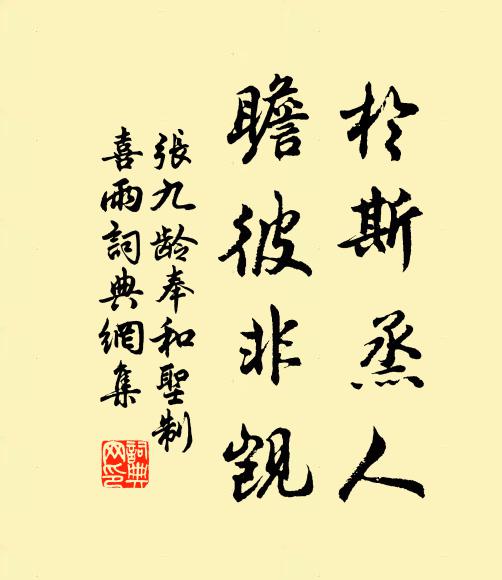 於斯烝人
瞻彼非覬
張九龄奉和聖制
喜雨詞典網集
詞典
网印